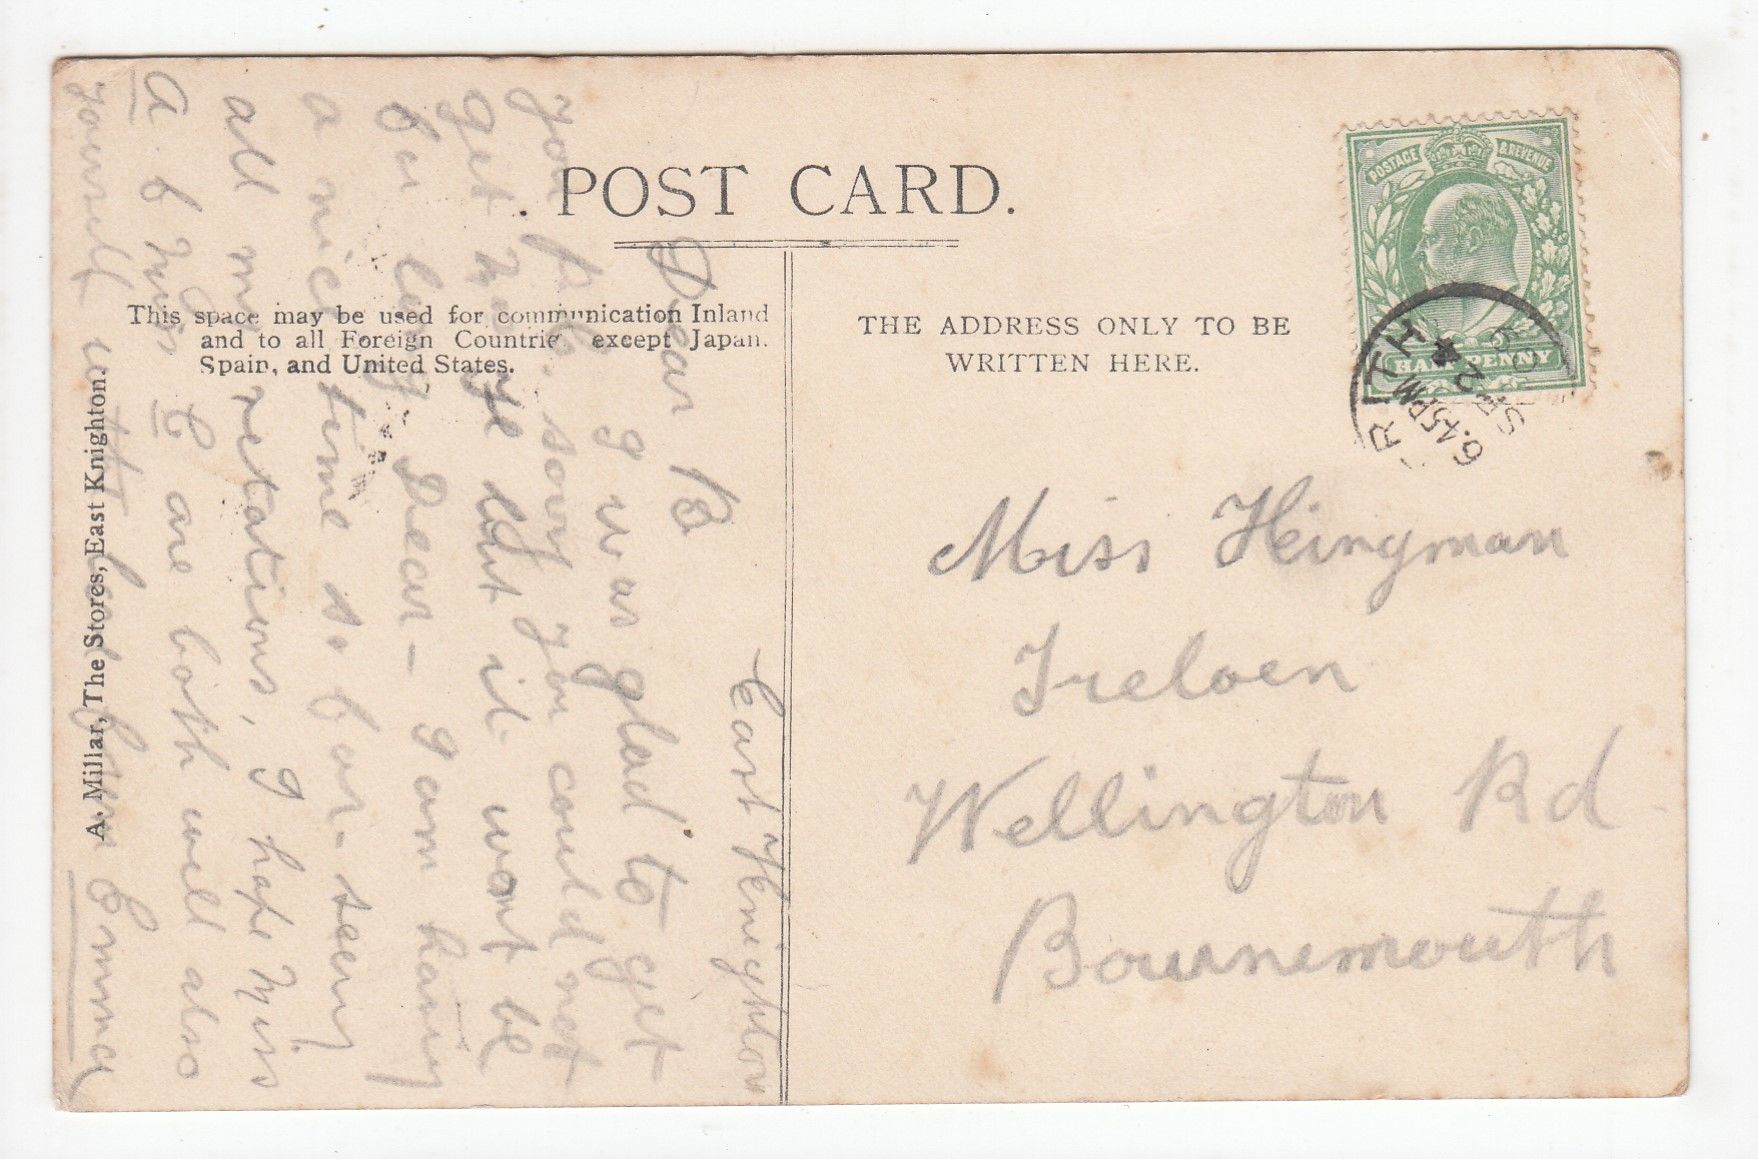 . POST CARD.
This space may be used for communication Inland
and to all Foreign Countries except Japan.
Spain, and United States.
THE ADDRESS ONLY TO BE
WRITTEN HERE.
POSTAGE & REVENUE
HALFPENNY
6.45PM
SP 2
09
Miss Hingman
Treloen
Wellington Rd
Bournemouth
A. Millar, The Stores, East Knighton.
East Knighton
Dear B
I was glad to get
your p.c. sorry you could not
get me ye but it wont be
for long Dear- I am having
a nice time so far. seeing
all my relations, I hope Miss
A & Miss C are both will also
yourself with love from Emma